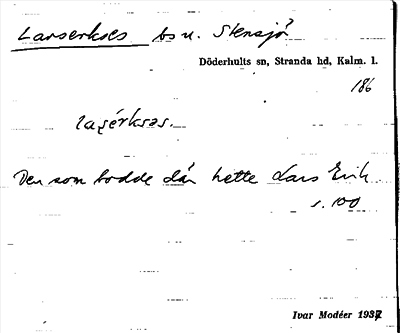 Larserkses bs u. Stensjö
Döderhults sn, Stranda hd, Kalm. l.
186
laşérksəs.
Den som bodde där hette Lars Erik
s. 100
Ivar Modéer 1937